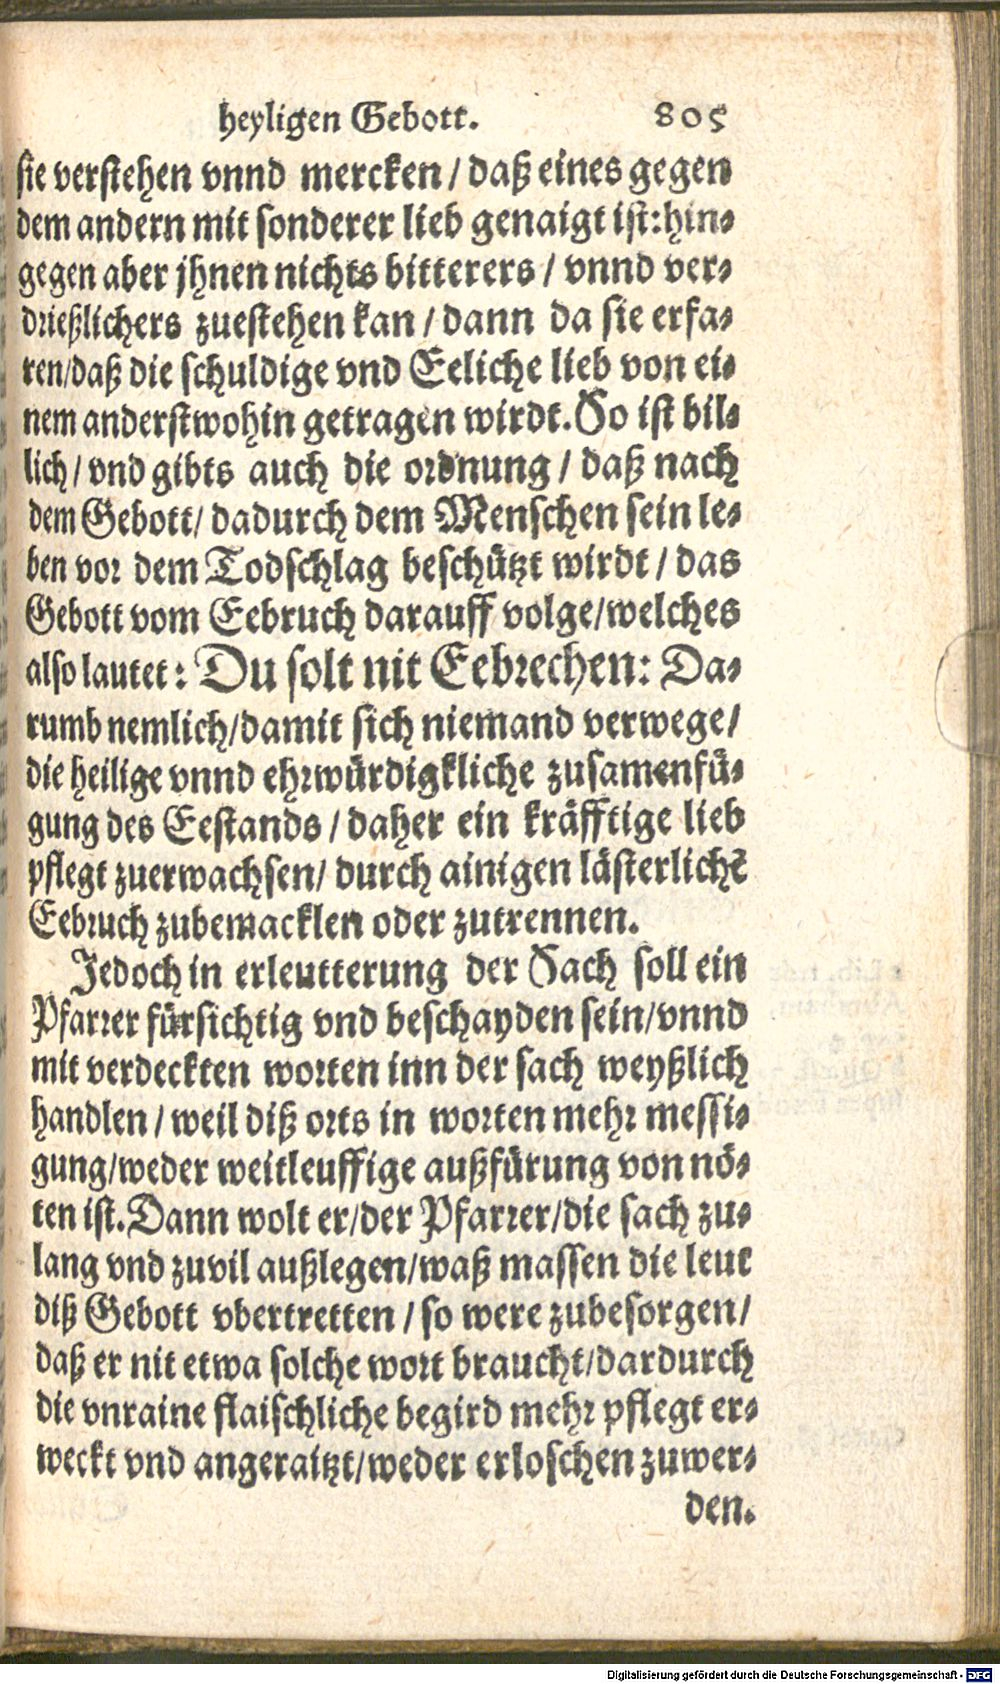 heyligen Gebott. 805
sie verstehen vnnd mercken / daß eines gegen
dem andern mit sonderer lieb genaigt ist: hin-
gegen aber jhnen nichts bitterers / vnnd ver-
drießlichers zuestehen kan / dann da sie erfa-
ren/daß die schuldige vnd Eeliche lieb von ei-
nem anderstwohin getragen wirdt. So ist bil-
lich / vnd gibts auch die ordnung / daß nach
dem Gebott/ dadurch dem Menschen sein le-
ben vor dem Todschlag beschützt wirdt / das
Gebott vom Eebruch darauff volge/welches
also lautet: Du solt nit Eebrechen: Da-
rumb nemlich/damit sich niemand verwege/
die heilige vnnd ehrwürdigkliche zusamenfü-
gung des Eestands / daher ein kräfftige lieb
pflegt zuerwachsen/ durch ainigen lästerlichẽ
Eebruch zubemacklen oder zutrennen.
Jedoch in erleutterung der Sach soll ein
Pfarrer fürsichtig vnd beschayden sein/vnnd
mit verdeckten worten inn der sach weyßlich
handlen / weil diß orts in worten mehr messi-
gung/weder weitleuffige außfürung von nö-
ten ist. Dann wolt er/der Pfarrer/die sach zu-
lang vnd zuvil außlegen/waß massen die leut
diß Gebott vbertretten / so were zubesorgen/
daß er nit etwa solche wort braucht/dardurch
die vnraine flaischliche begird mehr pflegt er-
weckt vnd angeraitzt/weder erloschen zuwer-
den.
Digitalisierung gefördert durch die Deutsche Forschungsgemeinschaft - DFG